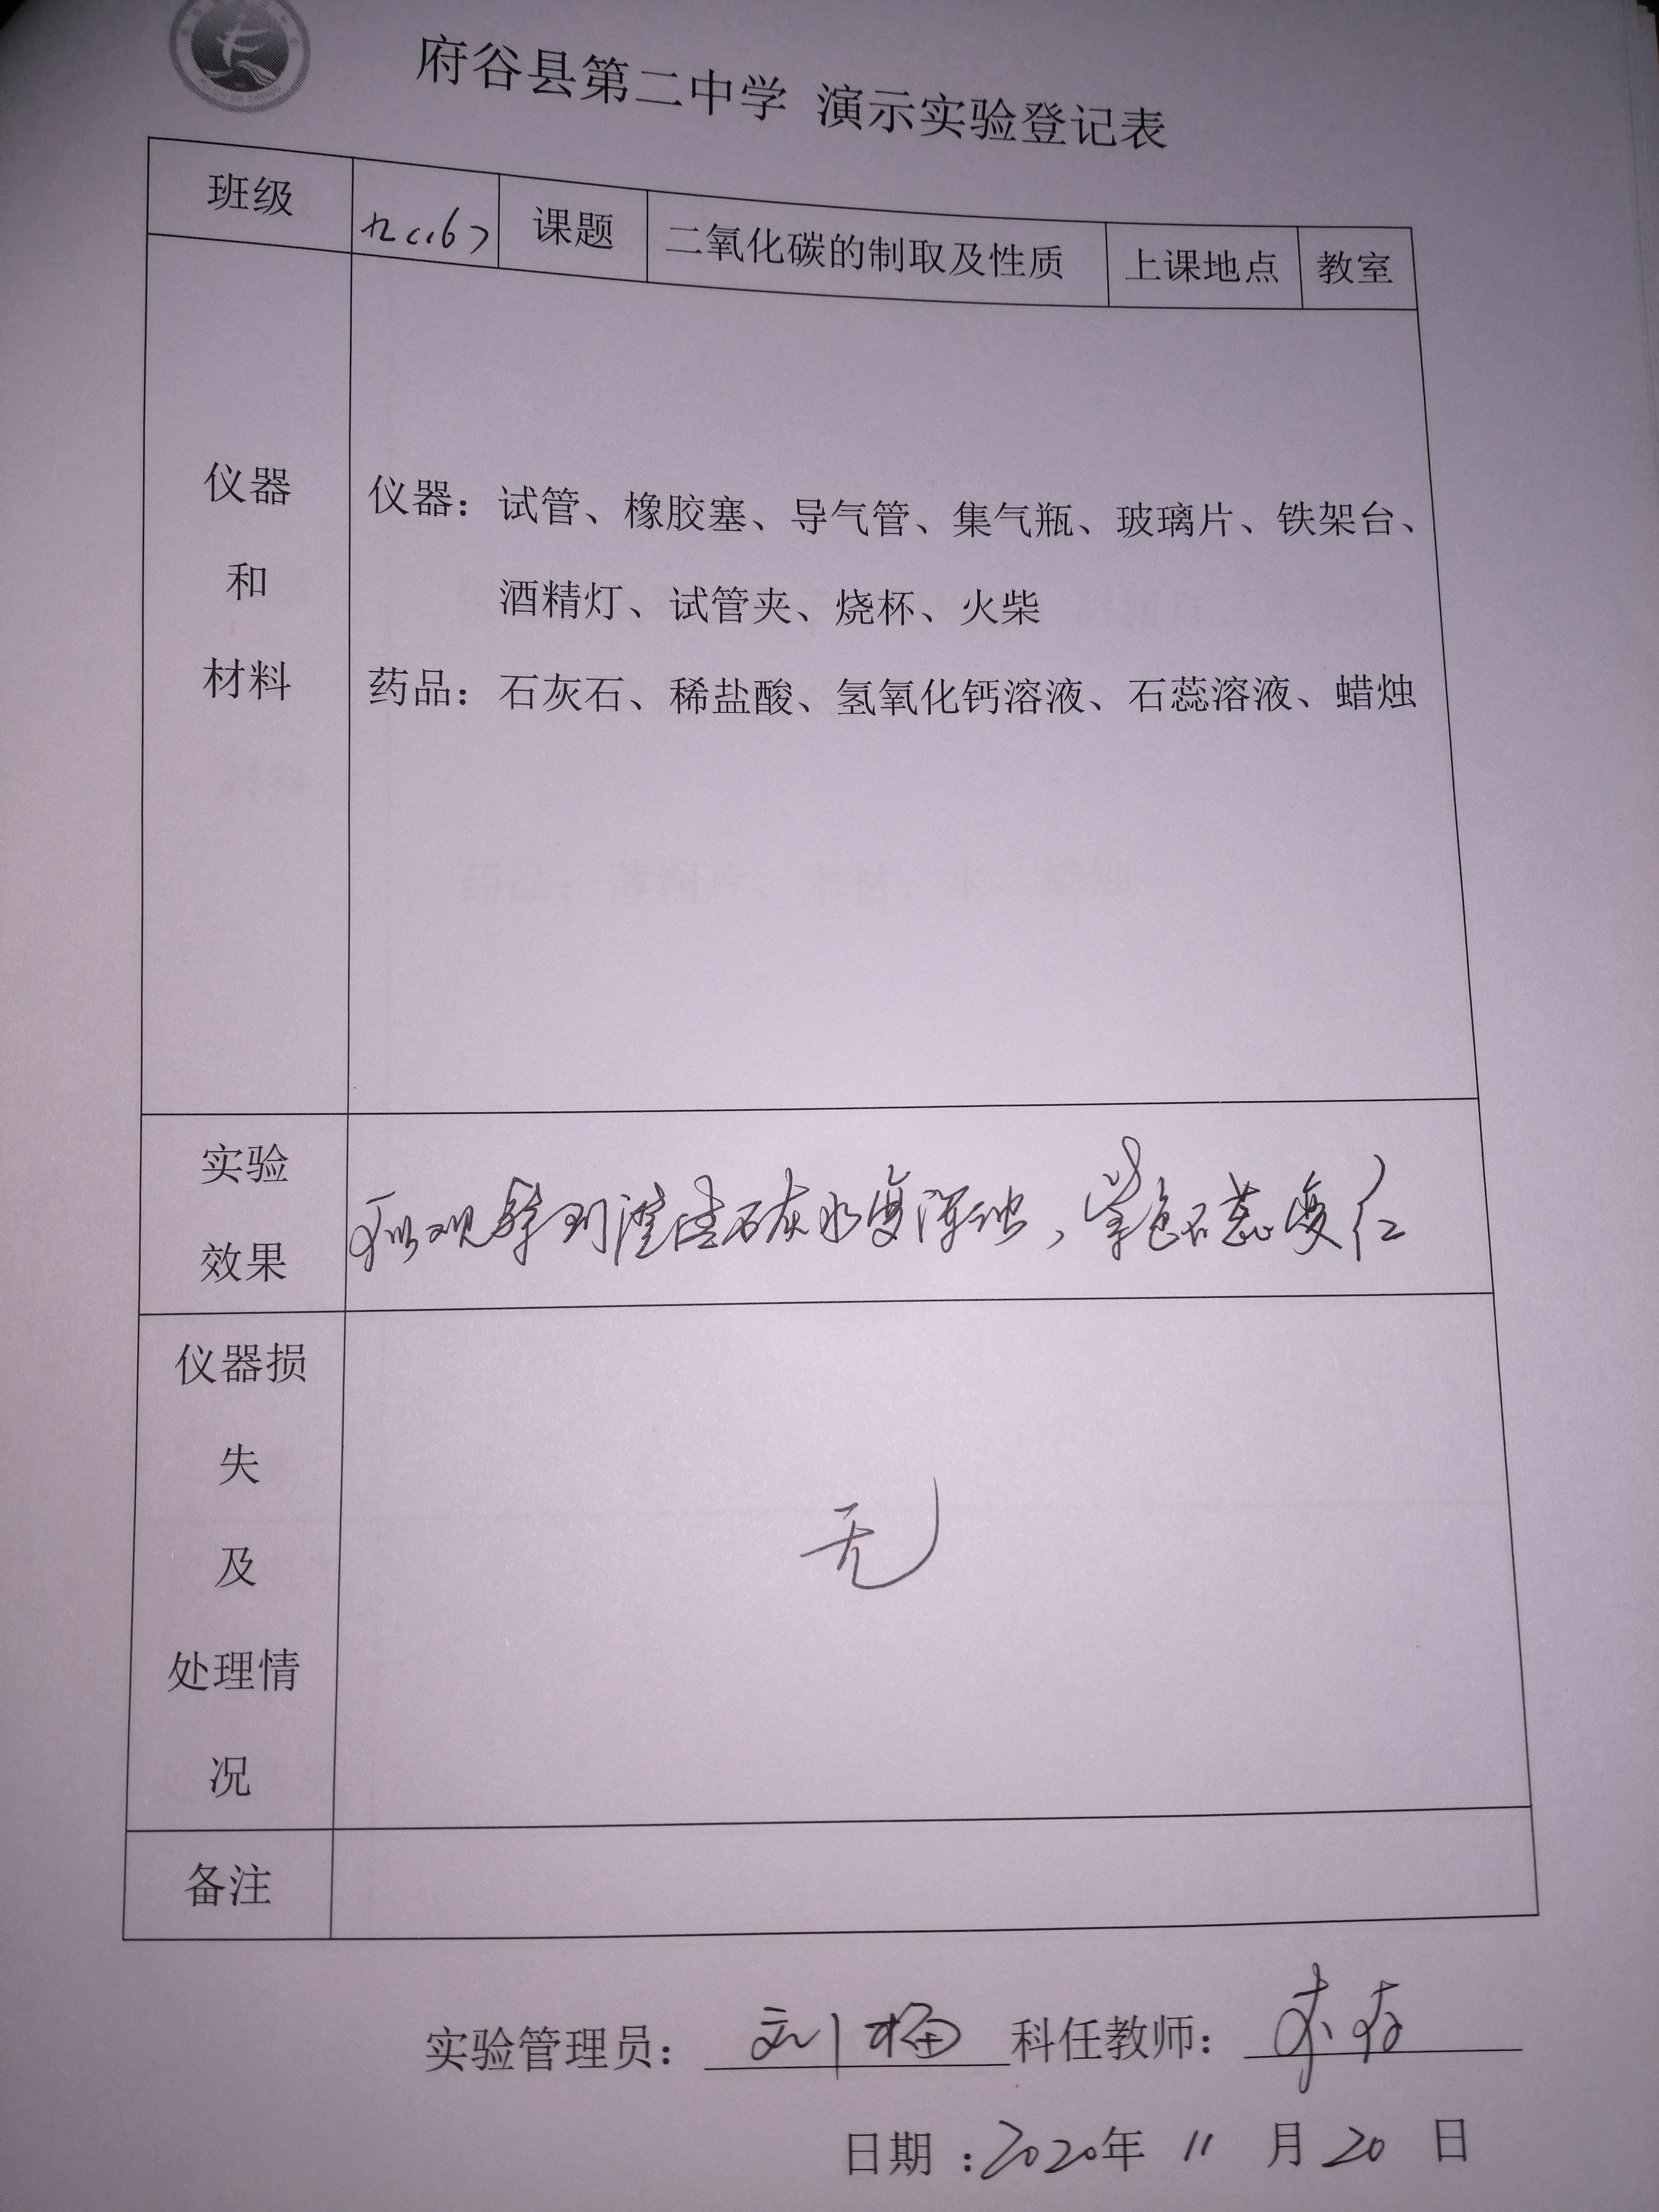 府谷县第二中学 演示实验登记表
班级 九(16) 课题 二氧化碳的制取及性质 上课地点 教室
仪器
和
材料
仪器：试管、橡胶塞、导气管、集气瓶、玻璃片、铁架台、
酒精灯、试管夹、烧杯、火柴
药品：石灰石、稀盐酸、氢氧化钙溶液、石蕊溶液、蜡烛
实验
效果
可以观察到澄清石灰水变浑浊，紫色石蕊变红
仪器损
失
及
处理情
况
无
备注
实验管理员： 刘梅 科任教师：
日期：2020年 11 月 20 日